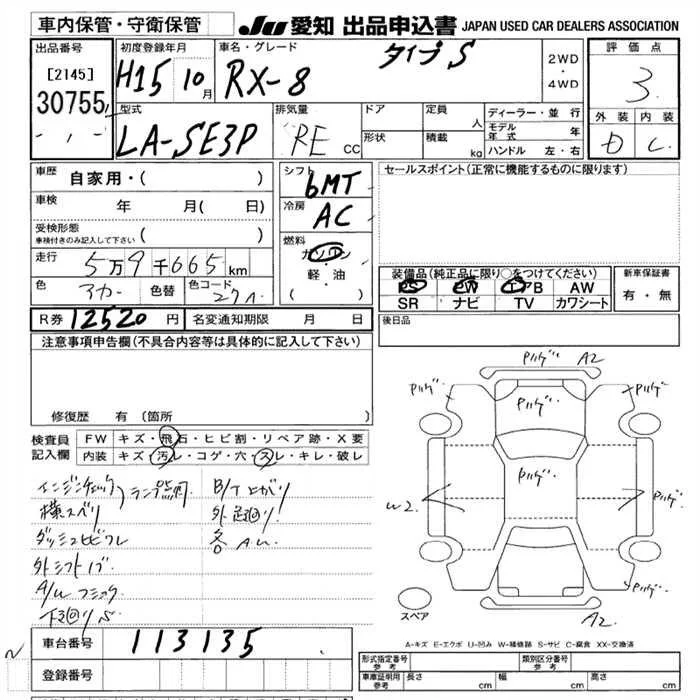 車内保管・守衛保管
JU 愛知 出品申込書 JAPAN USED CAR DEALERS ASSOCIATION
出品番号
[2145]
30755
初度登録年月
H15 10月
車名・グレード
RX-8 タイプS
2WD
・
4WD
評価点
3
外装 内装
D C
型式
LA-SE3P
排気量
RE CC
ドア
形状
定員 人
積載 kg
ディーラー・並行
モデル年式 年
ハンドル 左・右
車歴 自家用・( )
車検 年 月( 日)
受検形態
車検付きのみ記入して下さい ( )
走行 5万9千665km
色 アカー 色替 色コード 27A
シフト
6MT
冷房
AC
燃料
ガソリン
・
軽・油
( )
セールスポイント(正常に機能するものに限ります)
装備品(純正品に限り○をつけてください)
PS PW エアB AW
SR ナビ TV カワシート
新車保証書
有・無
R券 12520円 名変通知期限 月 日
後日品
注意事項申告欄(不具合内容等は具体的に記入して下さい)
修復歴 有(箇所 )
検査員記入欄
FW キズ・飛石・ヒビ割・リペア跡・X要
内装 キズ・汚レ・コゲ・穴・スレ・キレ・破レ
エンジンチェック
横スベリ
ランプ点灯
ダッシュヒビワレ
外シフトノブ
下回りサビ
B/T上がり
外 足回り
各 AU
Pハゲ A2
Pハゲ Pハゲ Pハゲ
Pハゲ
W2 Pハゲ
A2
スペア
A-キズ E-エクボ U-凹み W-補修跡 S-サビ C-腐食 XX-交換済
車台番号 113135
登録番号
形式指定番号 参考
類別区分番号 参考
車庫証明用 参考 長さ cm 幅 cm 高さ cm